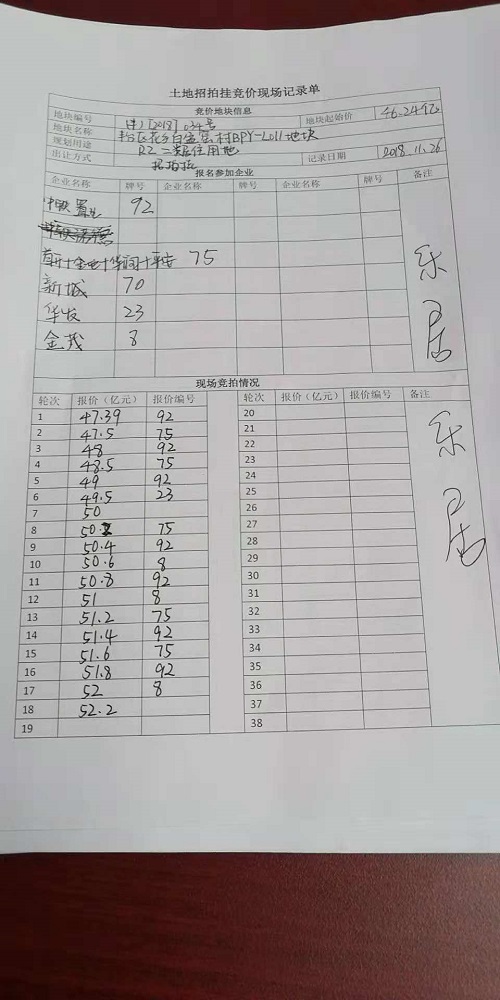 土地招拍挂竞价现场记录单
竞价地块信息
地块编号 [2018]034号 地块起始价 46.24亿
地块名称 丰台区花乡白盆窑村BPY-L011地块
规划用途 R2二类居住用地
出让方式 招拍挂 记录日期 2018.11.26
报名参加企业
企业名称 牌号 企业名称 牌号 企业名称 牌号 备注
中铁置业 92
首开+金地+华润+平安 75
新城 70
华发 23
金茂 8
乐居
现场竞拍情况
轮次 报价（亿元） 报价编号 轮次 报价（亿元） 报价编号 备注
1 47.39 92 20
2 47.5 75 21
3 48 92 22
4 48.5 75 23
5 49 92 24
6 49.5 23 25
7 50 26
8 50.2 75 27
9 50.4 92 28
10 50.6 8 29
11 50.8 92 30
12 51 8 31
13 51.2 75 32
14 51.4 92 33
15 51.6 75 34
16 51.8 92 35
17 52 8 36
18 52.2 37
19 38
乐居